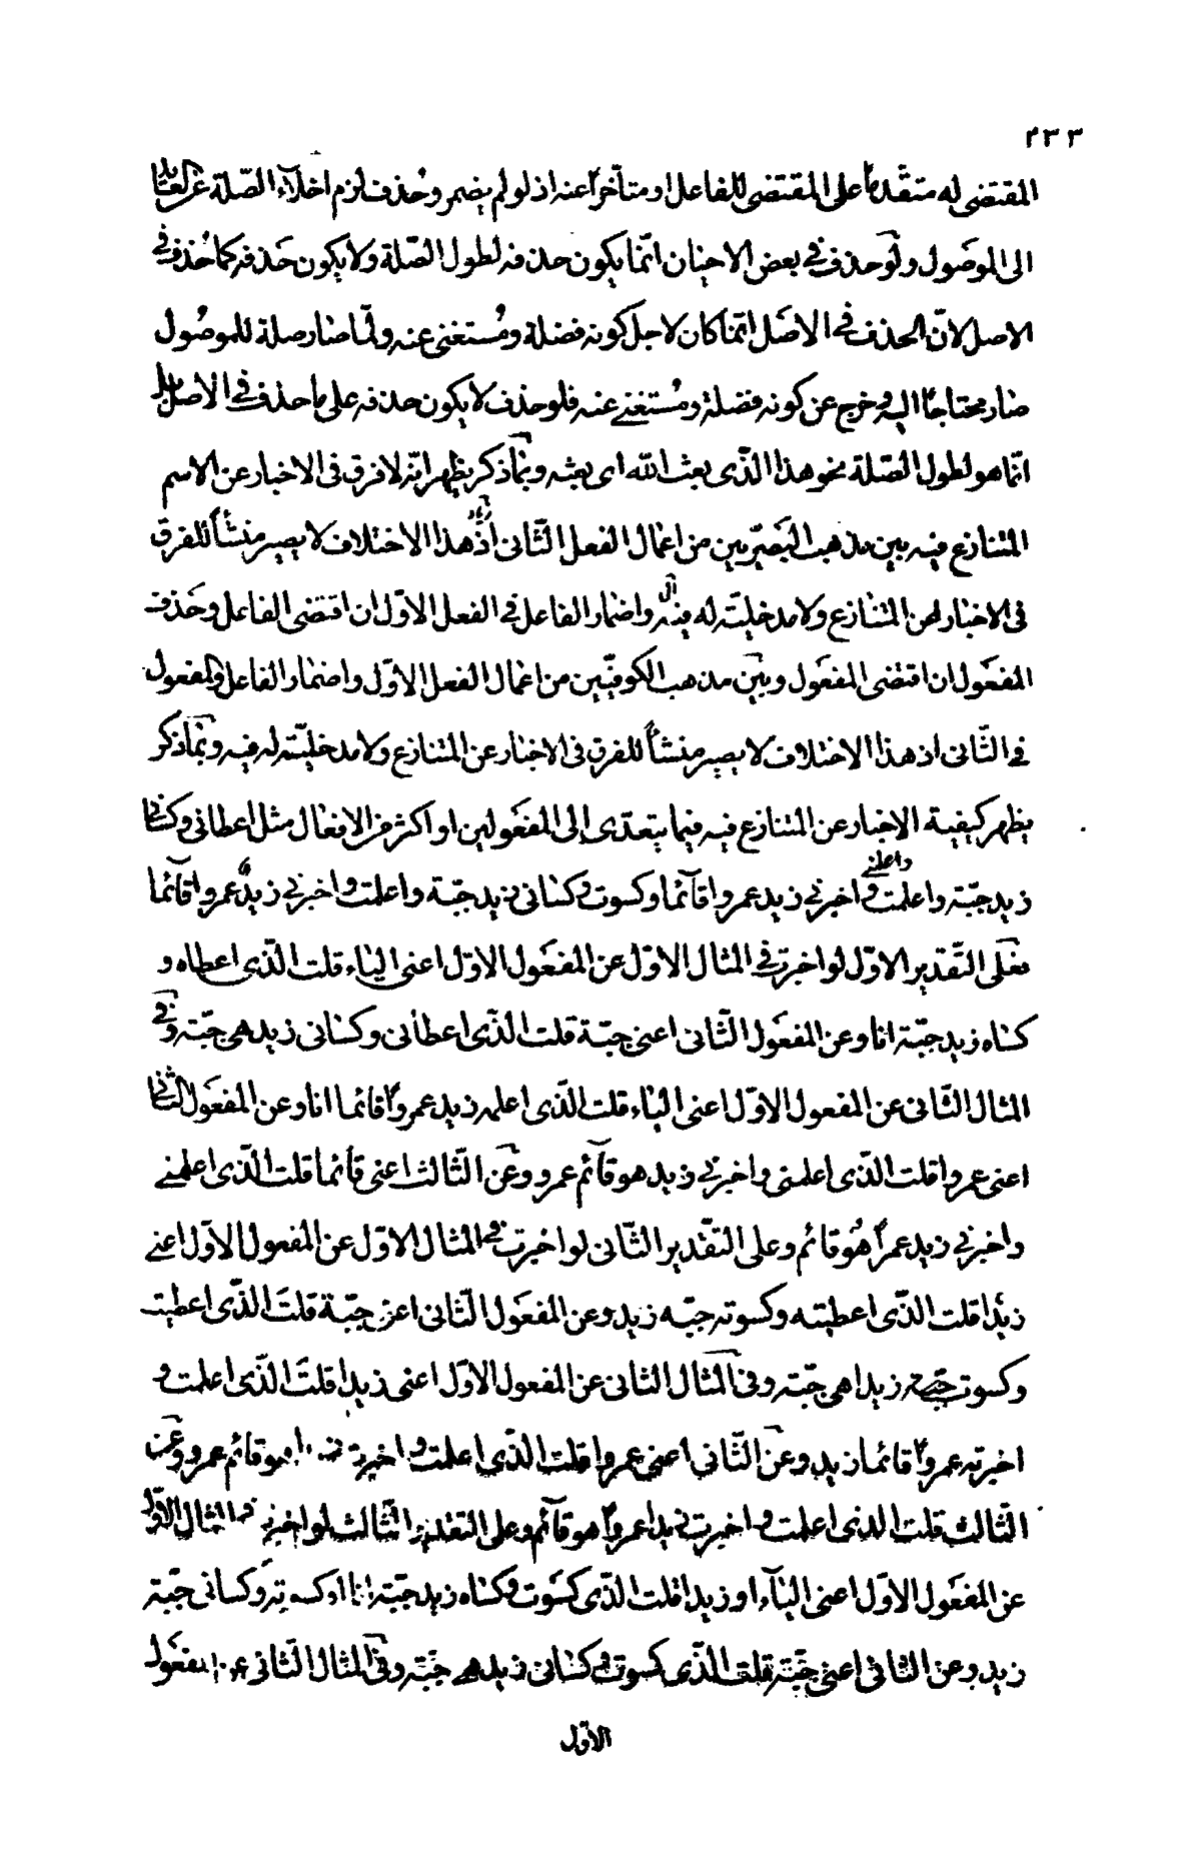 ٢٣٣
المقتضى له متقدما على المقتضى للفاعل او متأخرا عنه اذ لو لم يضمر وحذف لزم اخلاء الصلة عن العائد
الى الموصول ولو حذف في بعض الاحيان انما يكون حذفه لطول الصلة ولا يكون حذفه كما حذف في
الاصل لان الحذف في الاصل انما كان لاجل كونه فضلة ومستغنى عنه ولما صار صلة للموصول
صار محتاجا اليه وخرج عن كونه فضلة ومستغنى عنه فلو حذف لا يكون حذفه على ما حذف في الاصل بل
انما هو لطول الصلة نحو هذا الذى بعث الله اى بعثه وبما ذكر يظهر انه لا فرق فى الاخبار عن الاسم
المتنازع فيه بين مذهب البصريين من اعمال الفعل الثانى اذ هذا الاختلاف لا يصير منشأ للفرق
فى الاخبار عن المتنازع ولا مدخلية له فيه واضمار الفاعل فى الفعل الاول ان اقتضى الفاعل وحذف
المفعول ان اقتضى المفعول وبين مذهب الكوفيين من اعمال الفعل الاول واضمار الفاعل والمفعول
فى الثانى اذ هذا الاختلاف لا يصير منشأ للفرق فى الاخبار عن المتنازع ولا مدخلية له فيه وبما ذكر
يظهر كيفية الاخبار عن المتنازع فيه فيما يتعدى الى المفعولين او اكثر من الافعال مثل اعطانى وكسانى
زيد جبة واعلمت واخبرنى زيد عمروا قآئما وكسوت وكسانى زيد جبة واعلمت واخبرنى زيد عمروا قآئما
فعلى التقدير الاول لو اخبرت فى المثال الاول عن المفعول الاول اعنى الياء قلت الذى اعطاه و
كساه زيد جبة انا وعن المفعول الثانى اعنى جبة قلت الذى اعطانى وكسانى زيد هى جبة وفى
المثال الثانى عن المفعول الاول اعنى الياء قلت الذى اعلمه زيد عمروا قائما انا وعن المفعول الثانى
اعنى عمروا قلت الذى اعلمنى واخبرنى زيد هو قآئم عمرو وعن الثالث اعنى قائما قلت الذى اعلمنى
واخبرنى زيد عمرا هو قائم وعلى التقدير الثانى لو اخبرت فى المثال الاول عن المفعول الاول اعنى
زيدا قلت الذى اعطيته وكسوته جبه زيد وعن المفعول الثانى اعنى جبة قلت الذى اعطيت
وكسوت زيدا هى جبة وفى المثال الثانى عن المفعول الاول اعنى زيدا قلت الذى اعلمت و
اخبرته عمروا قائما زيد وعن الثانى اعنى عمروا قلت الذى اعلمت واخبرت هو قائم عمرو وعن
الثالث قلت الذى اعلمت واخبرت زيدا عمروا هو قآئم وعلى التقدير الثالث لو اخبرت المثال الاول
عن المفعول الاول اعنى اليآء او زيدا قلت الذى كسوت وكساه زيد جبة انا او كسوته وكسانى جبة
زيد وعن الثانى اعنى جبة قلت الذى كسوت وكسانى زيد هى جبة وفى المثال الثانى عن المفعول
الاول